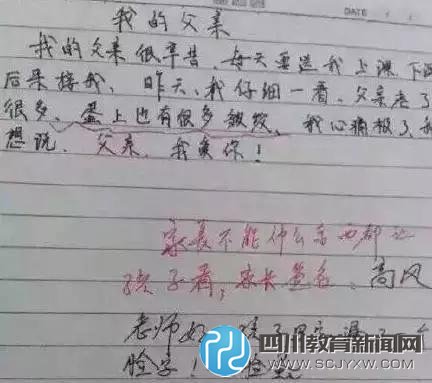 DATE
我的父亲
我的父亲很辛苦,每天要送我上课,下课
后来接我。昨天,我仔细一看,父亲老了
很多,蛋上也有很多皱纹,我心痛极了,我
想说:父亲,我爱你!
家长不能什么东西都让
孩子看,家长签名:高风
老师好,孩子只是漏了一个
脸字!脸蛋
四川教育新闻网
WWW.SCJYXW.COM